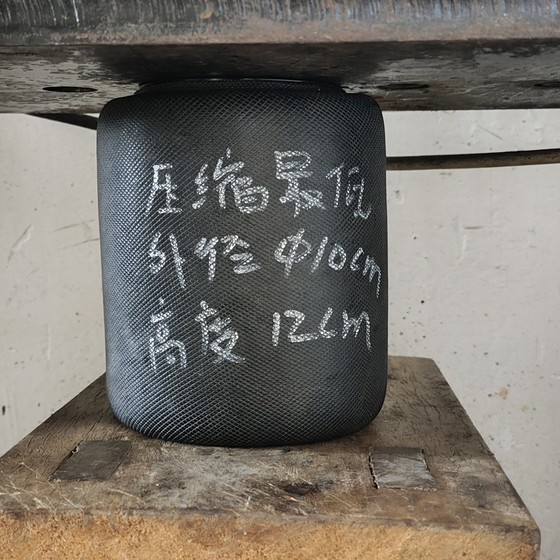 压缩最低
外径Φ10cm
高度12cm